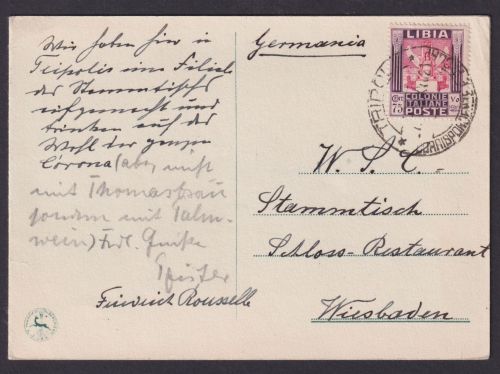 Wir haben hier in
Tripolis eine Filiale
des Stammtischs
aufgemacht und
trinken auf das
Wohl der ganzen
Corona (aber nicht
mit Thomasbräu
sondern mit Palm-
wein) Frdl. Grüße
Pfister
Friedrich Rousselle
Germania
LIBIA
COLONIE
ITALIANE
Cent 75
POSTE
TRIPOLI
W. S. C.
Stammtisch
Schloss-Restaurant
Wiesbaden